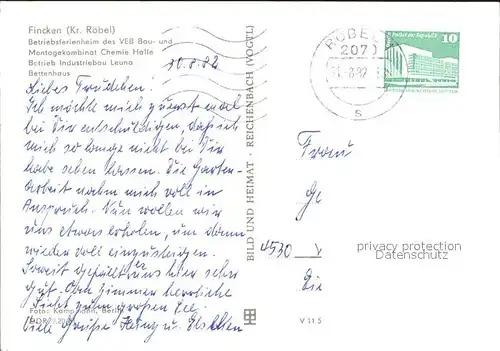 Fincken (Kr. Röbel)
Betriebsferienheim des VEB Bau- und
Montagekombinat Chemie Halle
Betrieb Industriebau Leuna
Bettenhaus
10.8.82
Liebes Trudchen.
Ich möchte mich zuerst mal
bei Dir entschuldigen, daß ich
mich so lange nicht bei Dir
habe sehen lassen. Die Garten-
Arbeit nahm mich voll in
Anspruch. Nun wollen wir
uns etwas erholen, um dann
wieder voll einzusteigen.
Soweit gefällt uns hier sehr
gut. Zimmer herrliche
Sicht zum großen See.
Foto: Kampmann, Berlin
Viele Grüße Heinz u.
BILD UND HEIMAT · REICHENBACH (VOGTL)
RÖBEL
2070
-8.82
s
10
Palast der Republik
Frau
Ge
4530
Die
privacy protection
Datenschutz
V 11 5